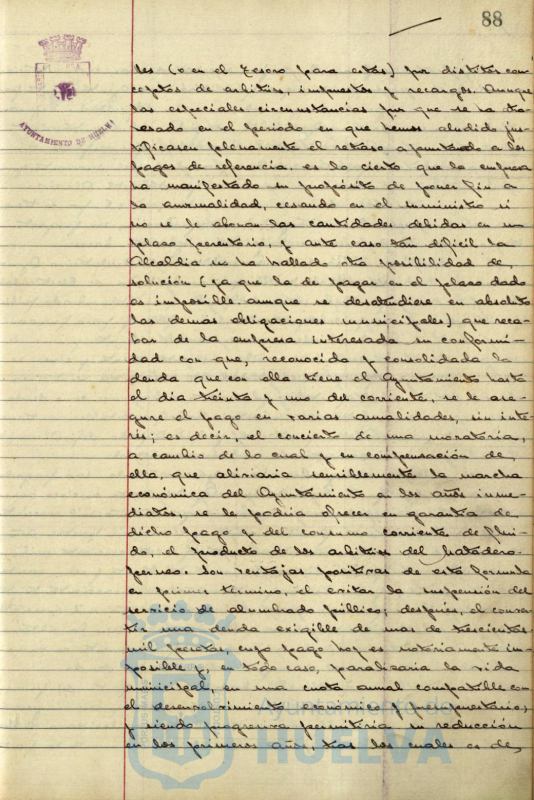 88
AYUNTAMIENTO DE HUELVA
les (o en el Tesoro para estos) por distintos con-
ceptos de arbitrios, impuestos y recargos. Aunque
las especiales circunstancias por que se ha
en el periodo en que hemos aludido jus-
tificasen plenamente el retraso apuntado a los
pagos de referencia, es lo cierto que la empresa
ha manifestado su propósito de poner fin a
la anormalidad, cesando en el suministro si
no se le abonan las cantidades debidas en un
plazo perentorio, y ante caso tan difícil la
Alcaldia no ha hallado otra posibilidad de
solución (ya que la de pagar en el plazo dado
es imposible aunque se desatendiese en absoluto
las demas obligaciones municipales) que reca-
bar de la empresa interesada su conformi-
dad con que, reconocida y consolidada la
deuda que con ella tiene el Ayuntamiento hasta
el día treinta y uno del corriente, se le ase-
gure el pago en varias anualidades, sin inte-
rés; es decir, el concierto de una moratoria,
a cambio de lo cual y en compensación de
ella, que aliviaria sensiblemente la marcha
económica del Ayuntamiento en los años inme-
diatos, se le podria ofrecer en garantía de
dicho pago y del consumo corriente de flui-
do, el producto de los arbitrios del Matadero
. Son ventajas positivas de esta formula
en primer termino, el evitar la suspensión del
servicio de alumbrado público; después, el conver-
tir una deuda exigible de mas de trescientas
mil pesetas, cuyo pago hoy es notoriamente im-
posible y, en todo caso, paralizaria la vida
municipal, en una cuota anual compatible con
el desenvolvimiento económico y presupuestario;
y siendo progresiva permitiria su reducción
en los primeros años, tras los cuales es de
Ayuntamiento de
HUELVA